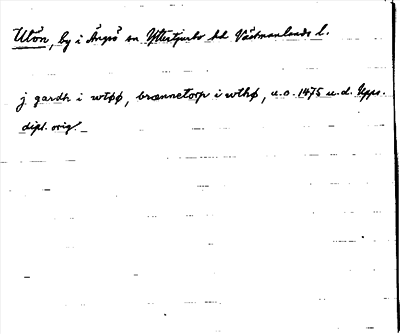 Utön, by i Ängsö sn Yttertjurbo hd Västmanlands l.
j gardh i wtøø, brænnetorp i wthø, u.o. 1475 u.d. Upps.
dipl. orig.